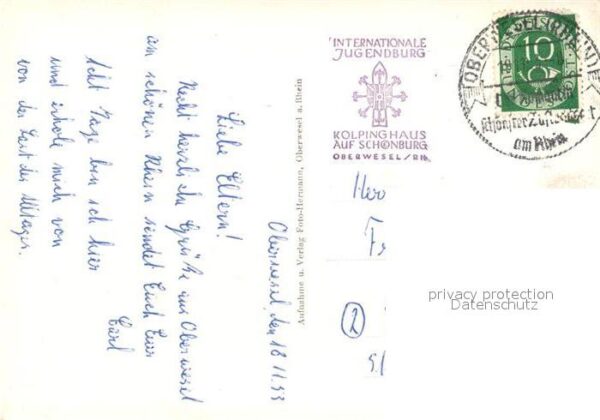 Oberwesel, den 18.11.53
Liebe Eltern!
Recht herzliche Grüße aus Oberwesel
am schönen Rhein sendet Euch Euer
Karl
Acht Tage bin ich hier
und erhole mich von
von der Last des Alltages.
Aufnahme u. Verlag Foto-Hermann, Oberwesel a. Rhein
INTERNATIONALE
JUGENDBURG
KOLPINGHAUS
AUF SCHÖNBURG
OBERWESEL/RH.
10
am Rhein
Herr
Fr
2
privacy protection
Datenschutz